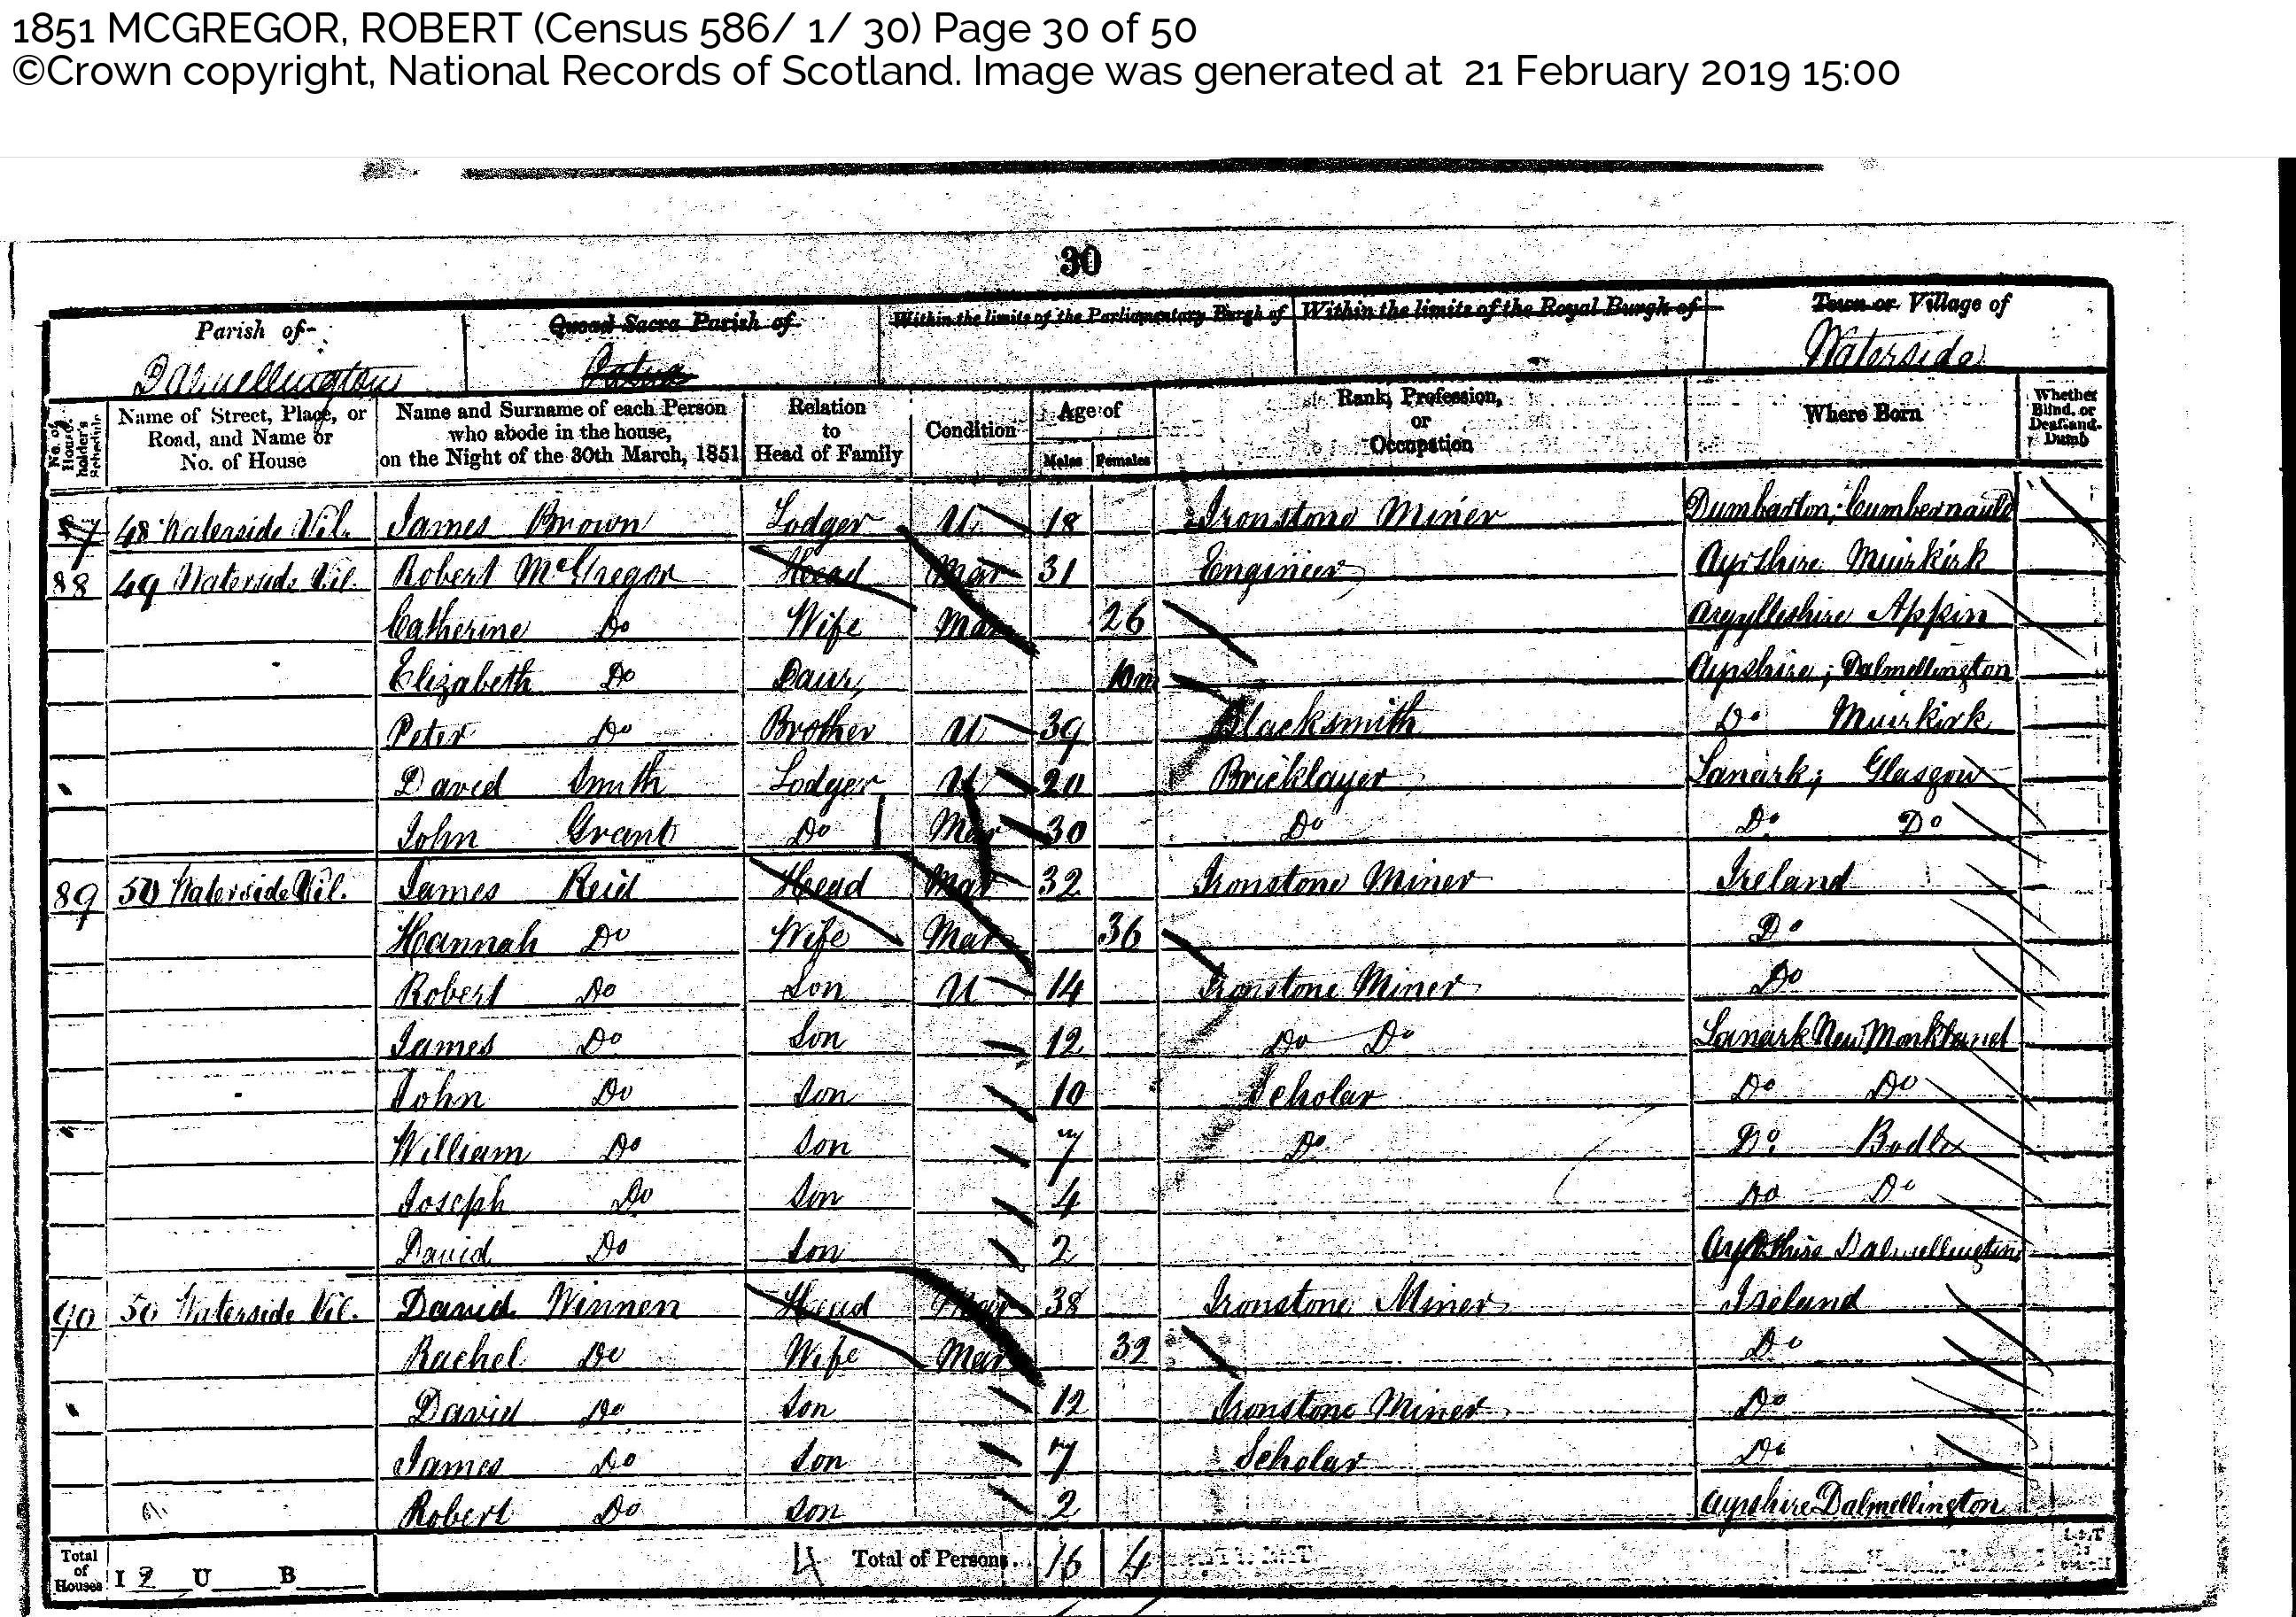 1851 MCGREGOR, ROBERT (Census 586/ 1/ 30) Page 30 of 50
©Crown copyright, National Records of Scotland. Image was generated at 21 February 2019 15:00
30
Parish of Quoad Sacra Parish of Within the limits of the Parliamentary Burgh of Within the limits of the Royal Burgh of Town or Village of
Dalmellington Waterside
No. of House-holder's Schedule Name of Street, Place, or Road, and Name or No. of House Name and Surname of each Person who abode in the house, on the Night of the 30th March, 1851 Relation to Head of Family Condition Age of Males Females Rank, Profession, or Occupation Where Born Whether Blind, or Deaf and Dumb
87 48 Waterside Vil. James Brown Lodger U 18 Ironstone Miner Dumbarton; Cumbernauld
88 49 Waterside Vil. Robert McGregor Head Mar 31 Engineer Ayrshire Muirkirk
Catherine Do Wife Mar 26 Argylleshire Appin
Elizabeth Do Daur 10m Ayrshire; Dalmellington
Peter Do Brother U 39 Blacksmith Do Muirkirk
David Smith Lodger U 20 Bricklayer Lanark; Glasgow
John Grant Do Mar 30 Do Do Do
89 50 Waterside Vil. James Reid Head Mar 32 Ironstone Miner Ireland
Hannah Do Wife Mar 36 Do
Robert Do Son U 14 Ironstone Miner Do
James Do Son 12 Do Do Lanark New Monkland
John Do Son 10 Scholar Do Do
William Do Son 7 Do Do
Joseph Do Son 4 Do Do
David Do Son 2 Ayrshire Dalmellington
90 50 Waterside Vil. David Winnen Head Mar 38 Ironstone Miner Ireland
Rachel Do Wife Mar 32 Do
David Do Son 12 Ironstone Miner Do
James Do Son 7 Scholar Do
Robert Do Son 2 Ayrshire Dalmellington
Total of Houses I 2 U B 4 Total of Persons 16 4